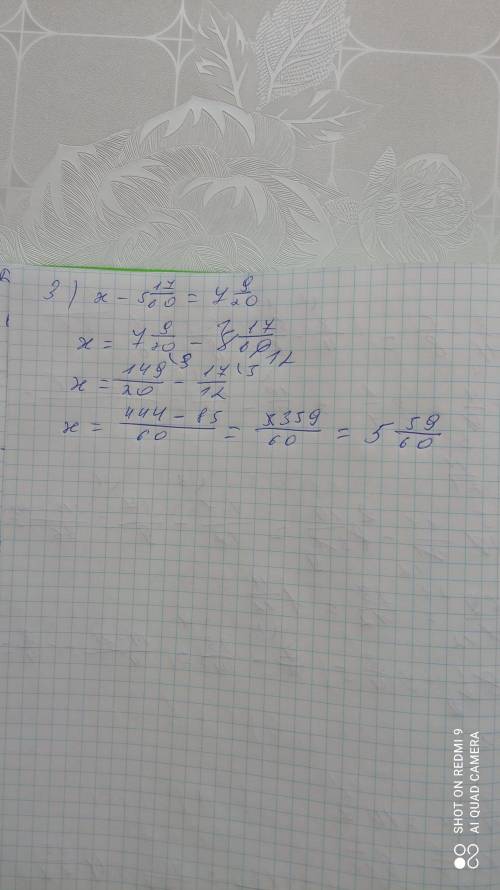 3) x - 5 17/60 = 7 9/20
x = 7 9/20 - 17/60 12
x = 149/20 (3 - 17/12 (5
x = 444 - 85/60 = 359/60 = 5 59/60
SHOT ON REDMI 9
AI QUAD CAMERA